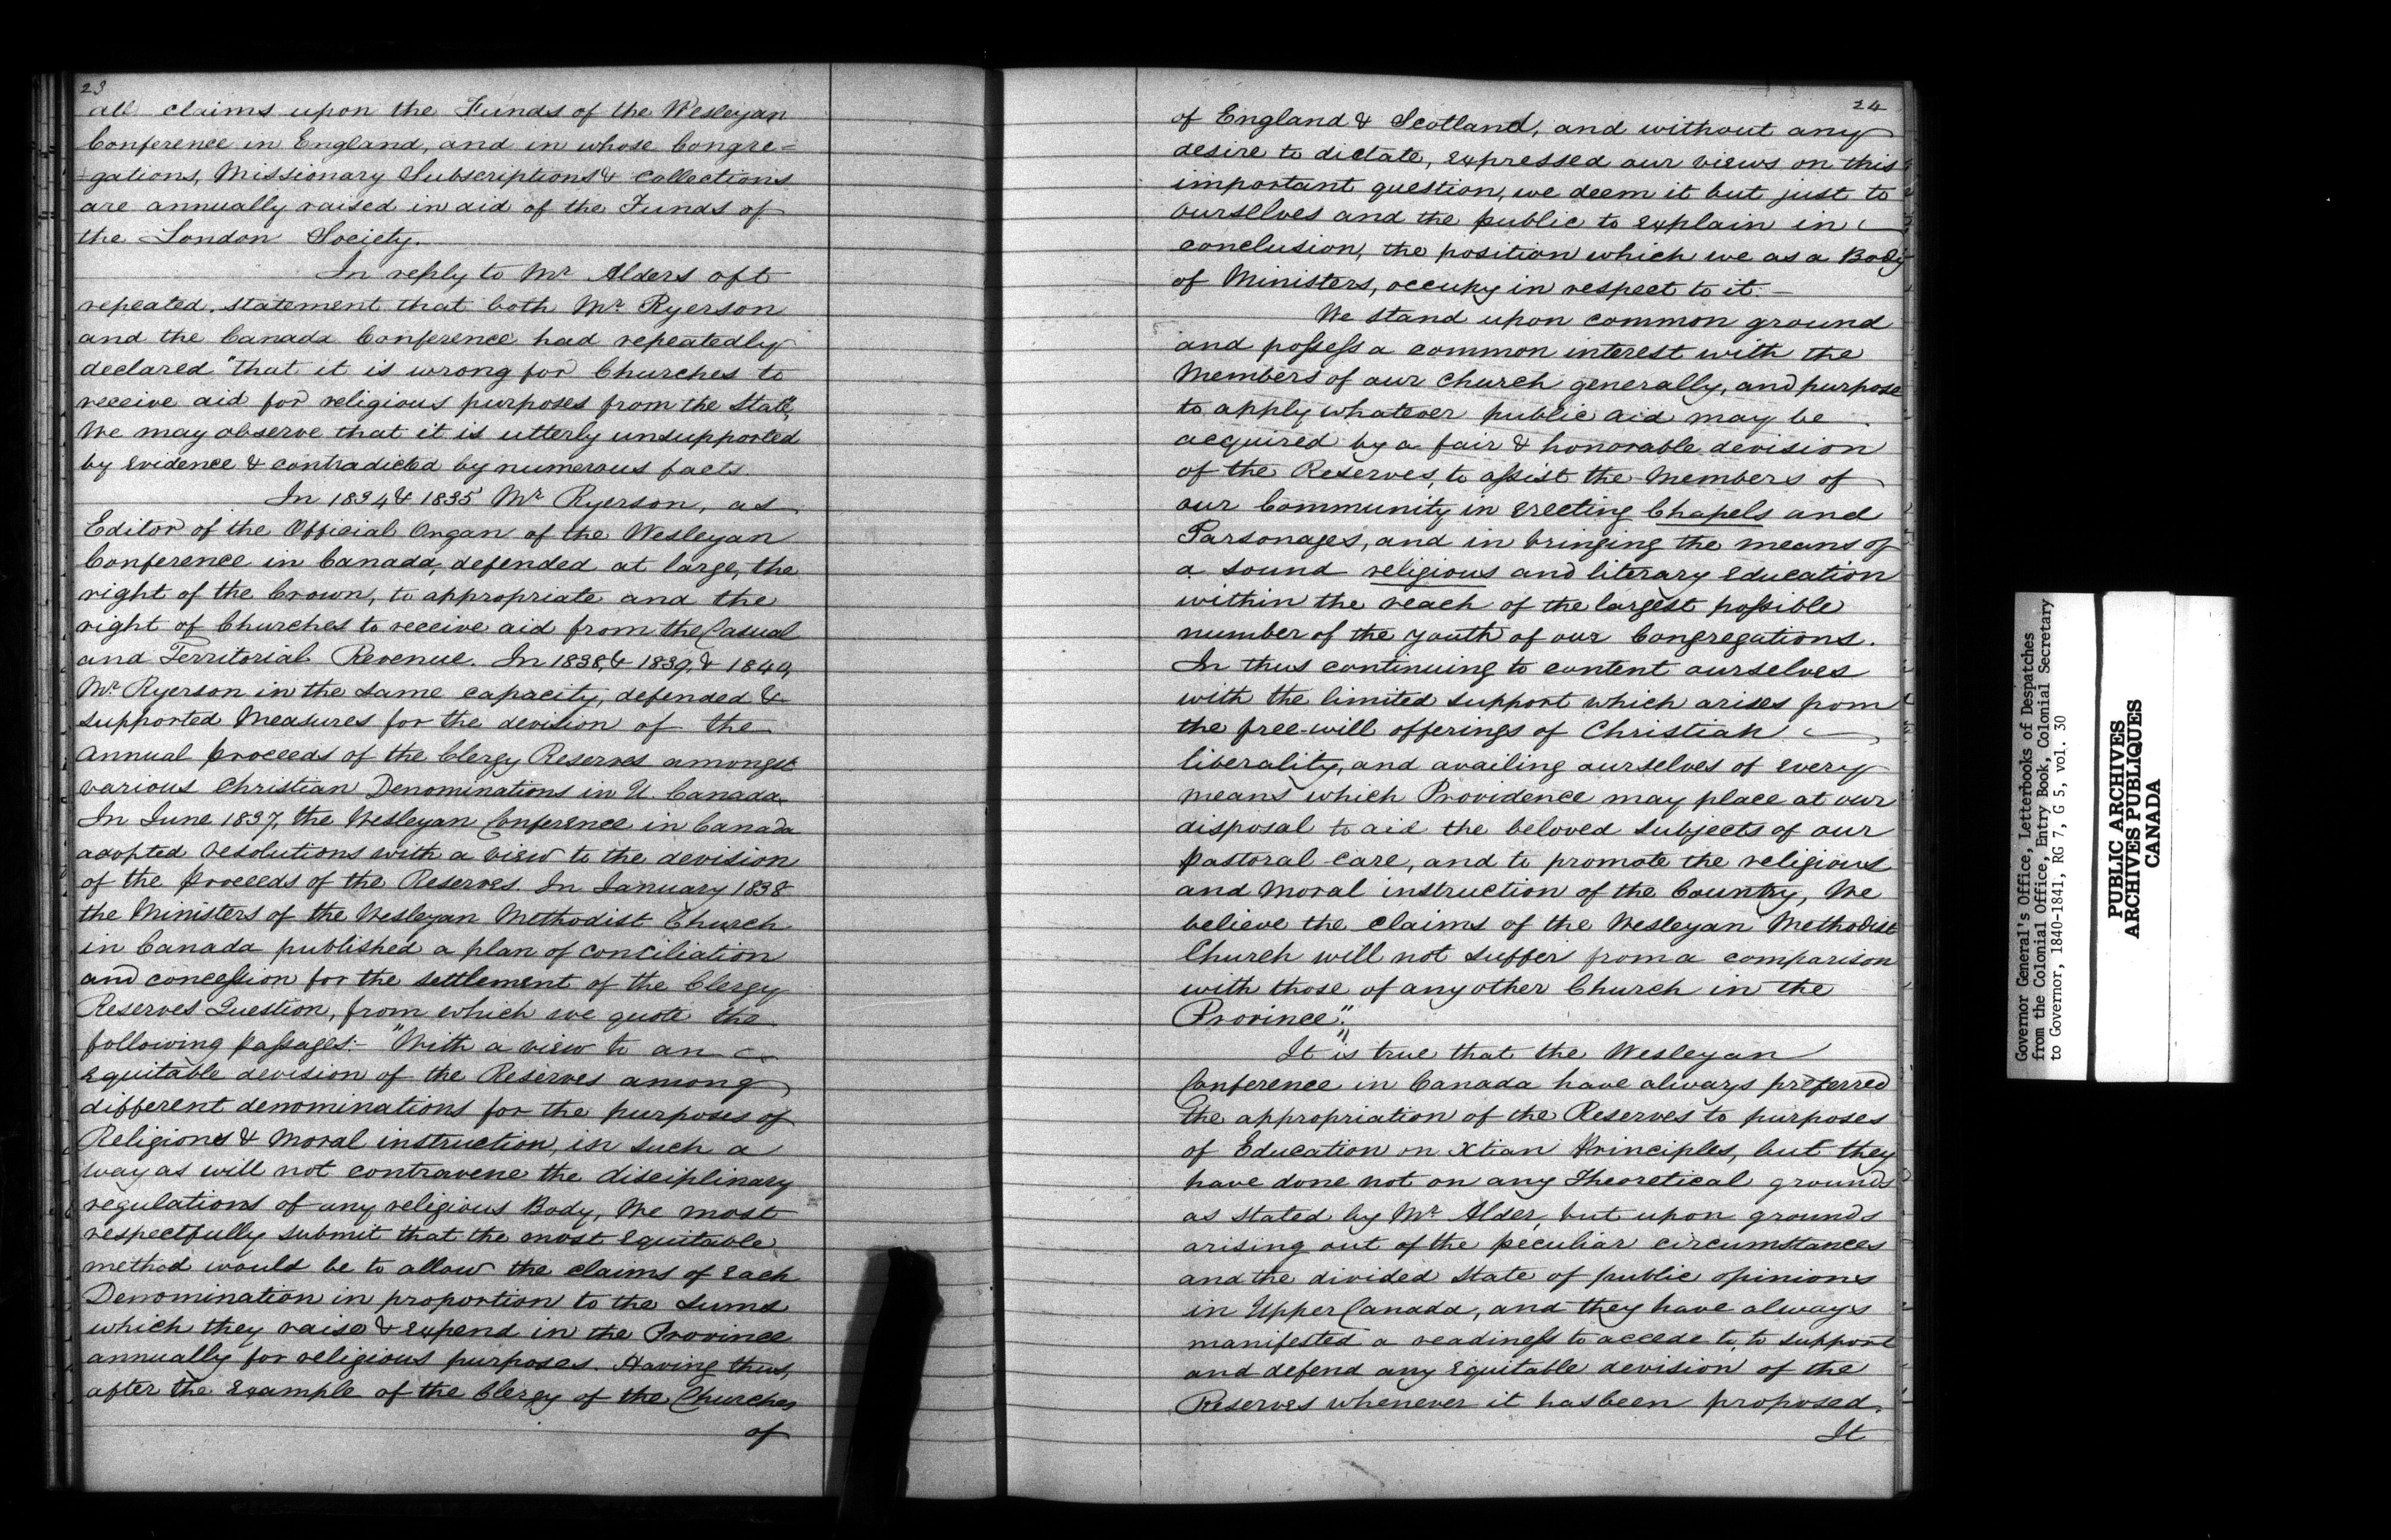 23
all claims upon the Funds of the Wesleyan
Conference in England, and in whose Congre=
=gations, Missionary Subscriptions & collections
are annually raised in aid of the Funds of
the London Society.
In reply to Mr Alders oft
repeated statement that both Mr Ryerson
and the Canada Conference had repeatedly
declared "that it is wrong for Churches to
receive aid for religious purposes from the State,"
We may observe that it is utterly unsupported
by evidence & contradicted by numerous facts.
In 1834 & 1835 Mr Ryerson, as
Editor of the Official Organ of the Wesleyan
Conference in Canada, defended at large, the
right of the Crown, to appropriate and the
right of Churches to receive aid from the Casual
and Territorial Revenue. In 1838, & 1839, & 1840,
Mr Ryerson in the same capacity, defended &
supported Measures for the devision of the
Annual proceeds of the Clergy Reserves amongst
various Christian Denominations in U. Canada.
In June 1837, the Wesleyan Conference in Canada
adopted resolutions with a view to the devision
of the proceeds of the Reserves. In January 1838
the Ministers of the Wesleyan Methodist Church
in Canada published a plan of conciliation
and concession for the settlement of the Clergy
Reserves Question, from which we quote the
following passages:- "With a view to an
equitable devision of the Reserves among
different denominations for the purposes of
Religions & Moral instruction, in such a
way as will not contravene the disciplinary
regulations of any religious Body, We most
respectfully submit that the most equitable
method would be to allow the claims of each
Denomination in proportion to the sums
which they raise & expend in the Province
annually for religious purposes. Having thus,
after the example of the Clergy of the Churches
of
24
of England & Scotland, and without any
desire to dictate, expressed our views on this
important question, we deem it but just to
ourselves and the public to explain in
conclusion, the position which we as a Body
of Ministers, occupy in respect to it.-
We stand upon common ground
and possess a common interest with the
Members of our Church generally, and purpose
to apply whatever public aid may be
acquired by a fair & honorable devision
of the Reserves, to assist the Members of
our Community in erecting Chapels and
Parsonages, and in bringing the means of
a sound religious and literary education
within the reach of the largest possible
number of the youth of our Congregations.
In thus continuing to content ourselves
with the limited support which arises from
the free-will offerings of Christian
liberality, and availing ourselves of every
means which Providence may place at our
disposal to aid the beloved subjects of our
pastoral care, and to promote the religious
and moral instruction of the Country, We
believe the claims of the Wesleyan Methodist
Church will not suffer from a comparison
with those of any other Church in the
Province".
"It is true that the Wesleyan
Conference in Canada have always preferred
the appropriation of the Reserves to purposes
of Education on Xtian Principles, but they
have done not on any Theoretical grounds
as stated by Mr Alder, but upon grounds
arising out of the peculiar circumstances
and the divided state of public opinions
in Upper Canada, and they have always
manifested a readiness to accede to, to support
and defend any equitable devision of the
Reserves whenever it has been proposed.
It
Governor General's Office, Letterbooks of Despatches
from the Colonial Office, Entry Book, Colonial Secretary
to Governor, 1840-1841, RG 7, G 5, vol. 30
PUBLIC ARCHIVES
ARCHIVES PUBLIQUES
CANADA